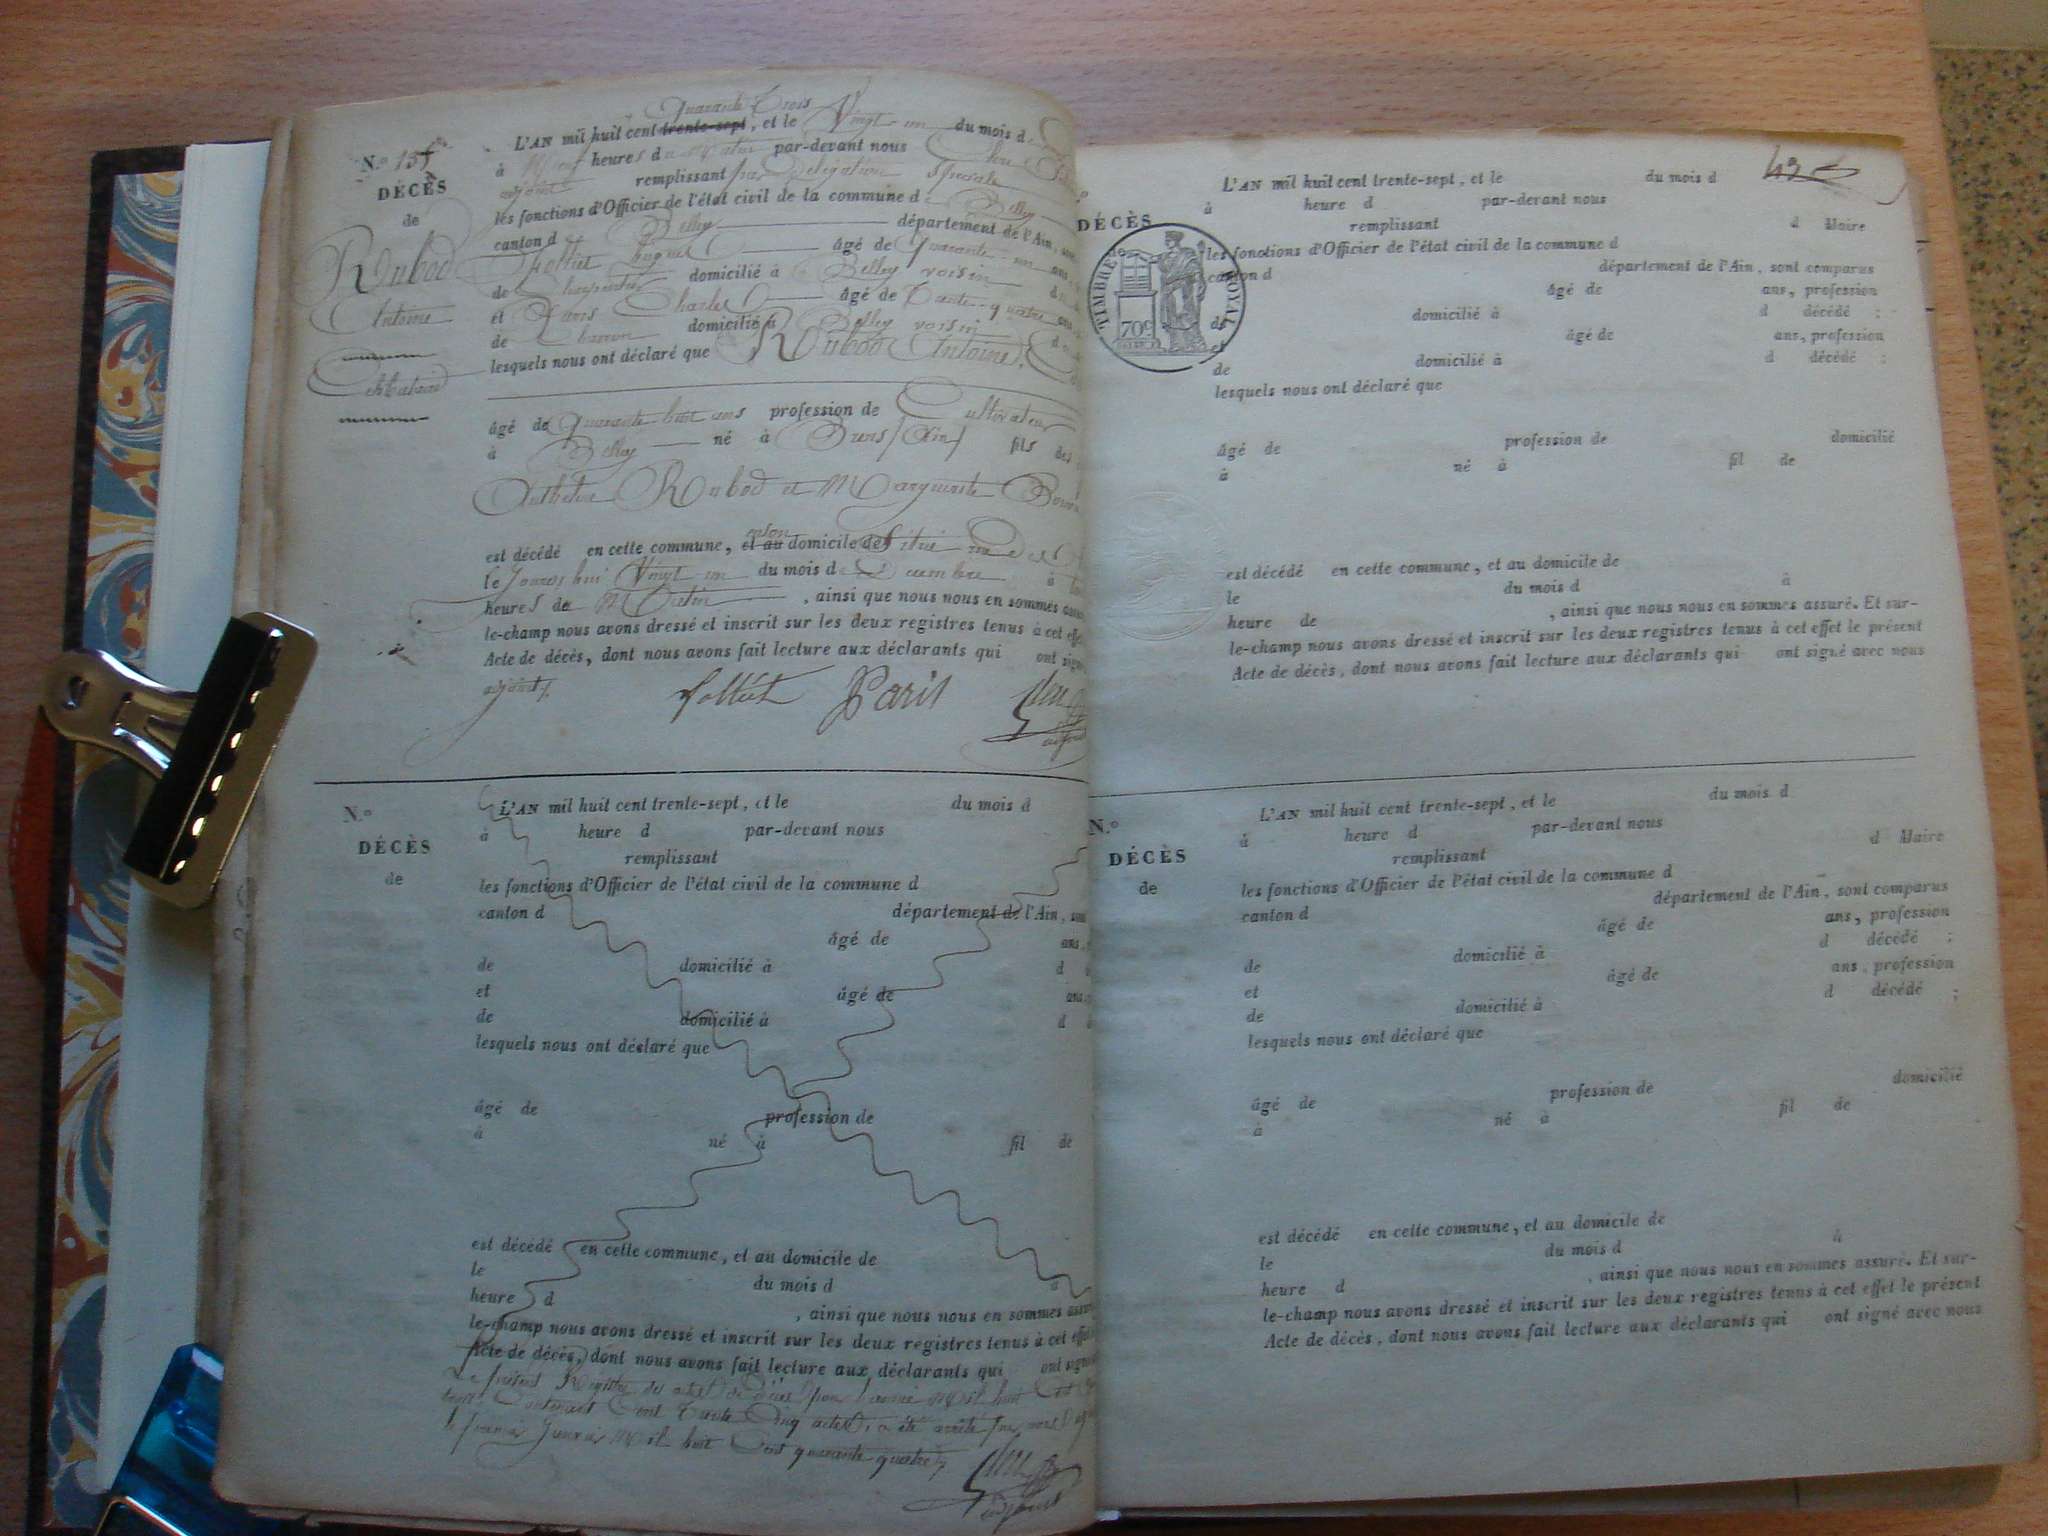 Quarante trois
N.º 135 L'AN mil huit cent trente-sept, et le Vingt-un du mois d
DÉCÈS à Neuf heures du Matin par-devant nous
de adjoint remplissant par Délégation Spéciale
les fonctions d'Officier de l'état civil de la commune de Belley
Rubod canton d Belley département de l'Ain, son
âgé de Quarante-un ans
Antoine de Charpentier domicilié à Belley voisin d
et Paris Charles âgé de Trente-quatre ans
Célibataire de domicilié à Belley voisin d
lesquels nous ont déclaré que Rubod Antoine,
âgé de Quarante huit ans profession de Cultivateur
à Belley né à (Ain) fils des
Anthelme Rubod et Marguerite
est décédé en cette commune, et au domicile de situé rue des
le Jourd'hui Vingt un du mois de Décembre à
heures du Matin , ainsi que nous nous en sommes assu
le-champ nous avons dressé et inscrit sur les deux registres tenus à cet effet
Acte de décès, dont nous avons fait lecture aux déclarants qui ont signé
adjoint. Paris
N.º L'AN mil huit cent trente-sept, et le du mois d
DÉCÈS à heure d par-devant nous
de remplissant
les fonctions d'Officier de l'état civil de la commune d
canton d département de l'Ain, son
âgé de ans,
de domicilié à d
et âgé de ans
de domicilié à d
lesquels nous ont déclaré que
âgé de profession de
à né à fil de
est décédé en cette commune, et au domicile de
le du mois d à
heure d , ainsi que nous nous en sommes assu
le-champ nous avons dressé et inscrit sur les deux registres tenus à cet effet
Acte de décès, dont nous avons fait lecture aux déclarants qui ont signé
Le présent Registre des actes de Décès pour l'année Mil huit Cent
Contenant Cent Trente Cinq actes, a été arrêté par nous
le premier Janvier Mil huit Cent quarante quatre
adjoint
L'AN mil huit cent trente-sept, et le du mois d
à heure d par-devant nous
DÉCÈS remplissant d Maire
les fonctions d'Officier de l'état civil de la commune d
canton d département de l'Ain, sont comparus
TIMBRE ROYAL
70c
âgé de ans, profession
de domicilié à d décédé ;
et âgé de ans, profession
de domicilié à d décédé ;
lesquels nous ont déclaré que
âgé de profession de domicilié
à né à fil de
est décédé en cette commune, et au domicile de
le du mois d à
heure de , ainsi que nous nous en sommes assuré. Et sur-
le-champ nous avons dressé et inscrit sur les deux registres tenus à cet effet le présent
Acte de décès, dont nous avons fait lecture aux déclarants qui ont signé avec nous
N.º L'AN mil huit cent trente-sept, et le du mois d
DÉCÈS à heure d par-devant nous
de remplissant d Maire
les fonctions d'Officier de l'état civil de la commune d
canton d département de l'Ain, sont comparus
âgé de ans, profession
de domicilié à d décédé ;
et âgé de ans, profession
de domicilié à d décédé ;
lesquels nous ont déclaré que
âgé de profession de domicilié
à né à fil de
est décédé en cette commune, et au domicile de
le du mois d à
heure d , ainsi que nous nous en sommes assuré. Et sur-
le-champ nous avons dressé et inscrit sur les deux registres tenus à cet effet le présent
Acte de décès, dont nous avons fait lecture aux déclarants qui ont signé avec nous